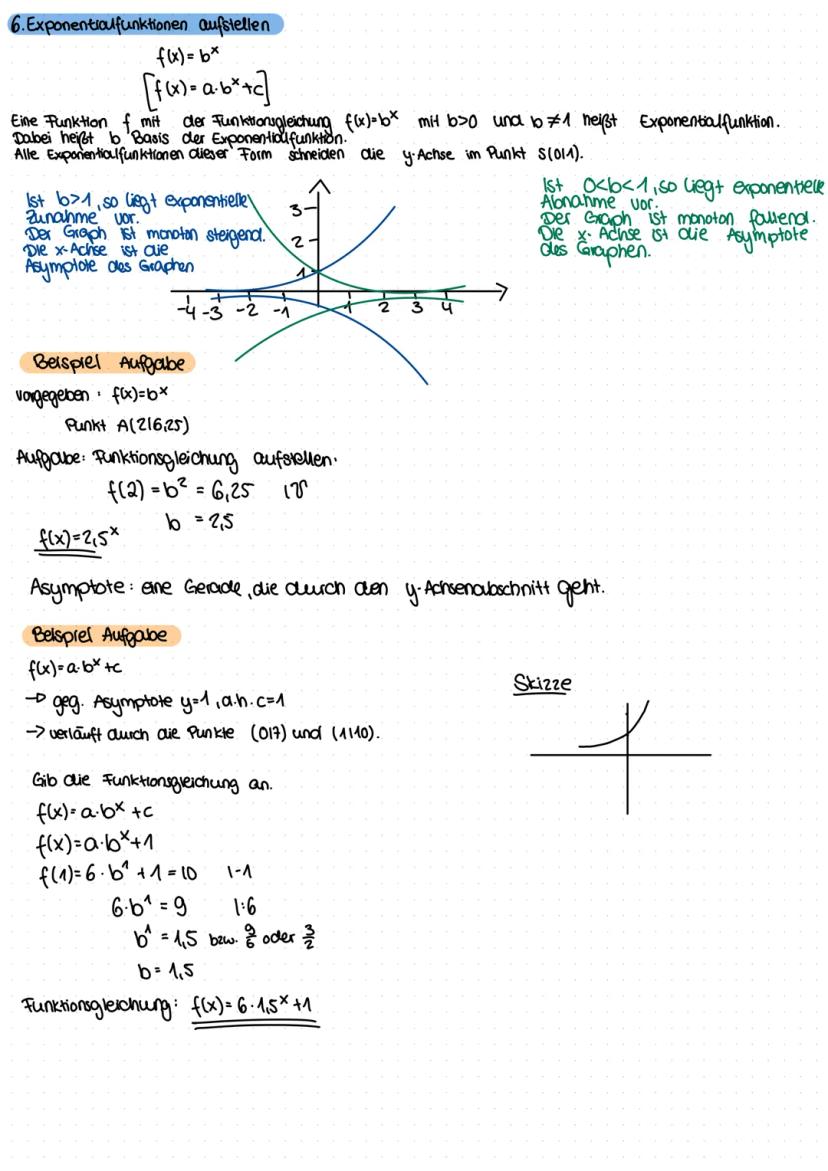 6. Exponentialfunktionen aufstellen
f(x) = b^x
[f(x) = a·b^x+c]
Eine Funktion f mit der Funktionsgleichung f(x)=b^x mit b>0 und b≠1 heißt Exponentialfunktion.
Dabei heißt b Basis der Exponentialfunktion.
Alle Exponentialfunktionen dieser Form schneiden die y-Achse im Punkt S(0|1).
Ist b>1, so liegt exponentielle
Zunahme vor.
Der Graph ist monoton steigend.
Die x-Achse ist die
Asymptote des Graphen
3
2
1
-4 -3 -2 -1 1 2 3 4
Ist 0<b<1, so liegt exponentielle
Abnahme vor.
Der Graph ist monoton fallend.
Die x-Achse ist die Asymptote
des Graphen.
Beispiel Aufgabe
vorgegeben: f(x)=b^x
Punkt A(2|6,25)
Aufgabe: Funktionsgleichung aufstellen.
f(2) = b² = 6,25 |√
b = 2,5
f(x)=2,5^x
Asymptote: eine Gerade, die durch den y-Achsenabschnitt geht.
Beispiel Aufgabe
f(x)=a·b^x+c
→ geg. Asymptote y=1, d.h. c=1
→ verläuft durch die Punkte (0|7) und (1|10).
Skizze
Gib die Funktionsgleichung an.
f(x)=a·b^x+c
f(x)=a·b^x+1
f(1)=6·b¹+1=10 |-1
6·b¹ = 9 |:6
b¹ = 1,5 bzw. 9/6 oder 3/2
b = 1,5
Funktionsgleichung: f(x)=6·1,5^x+1